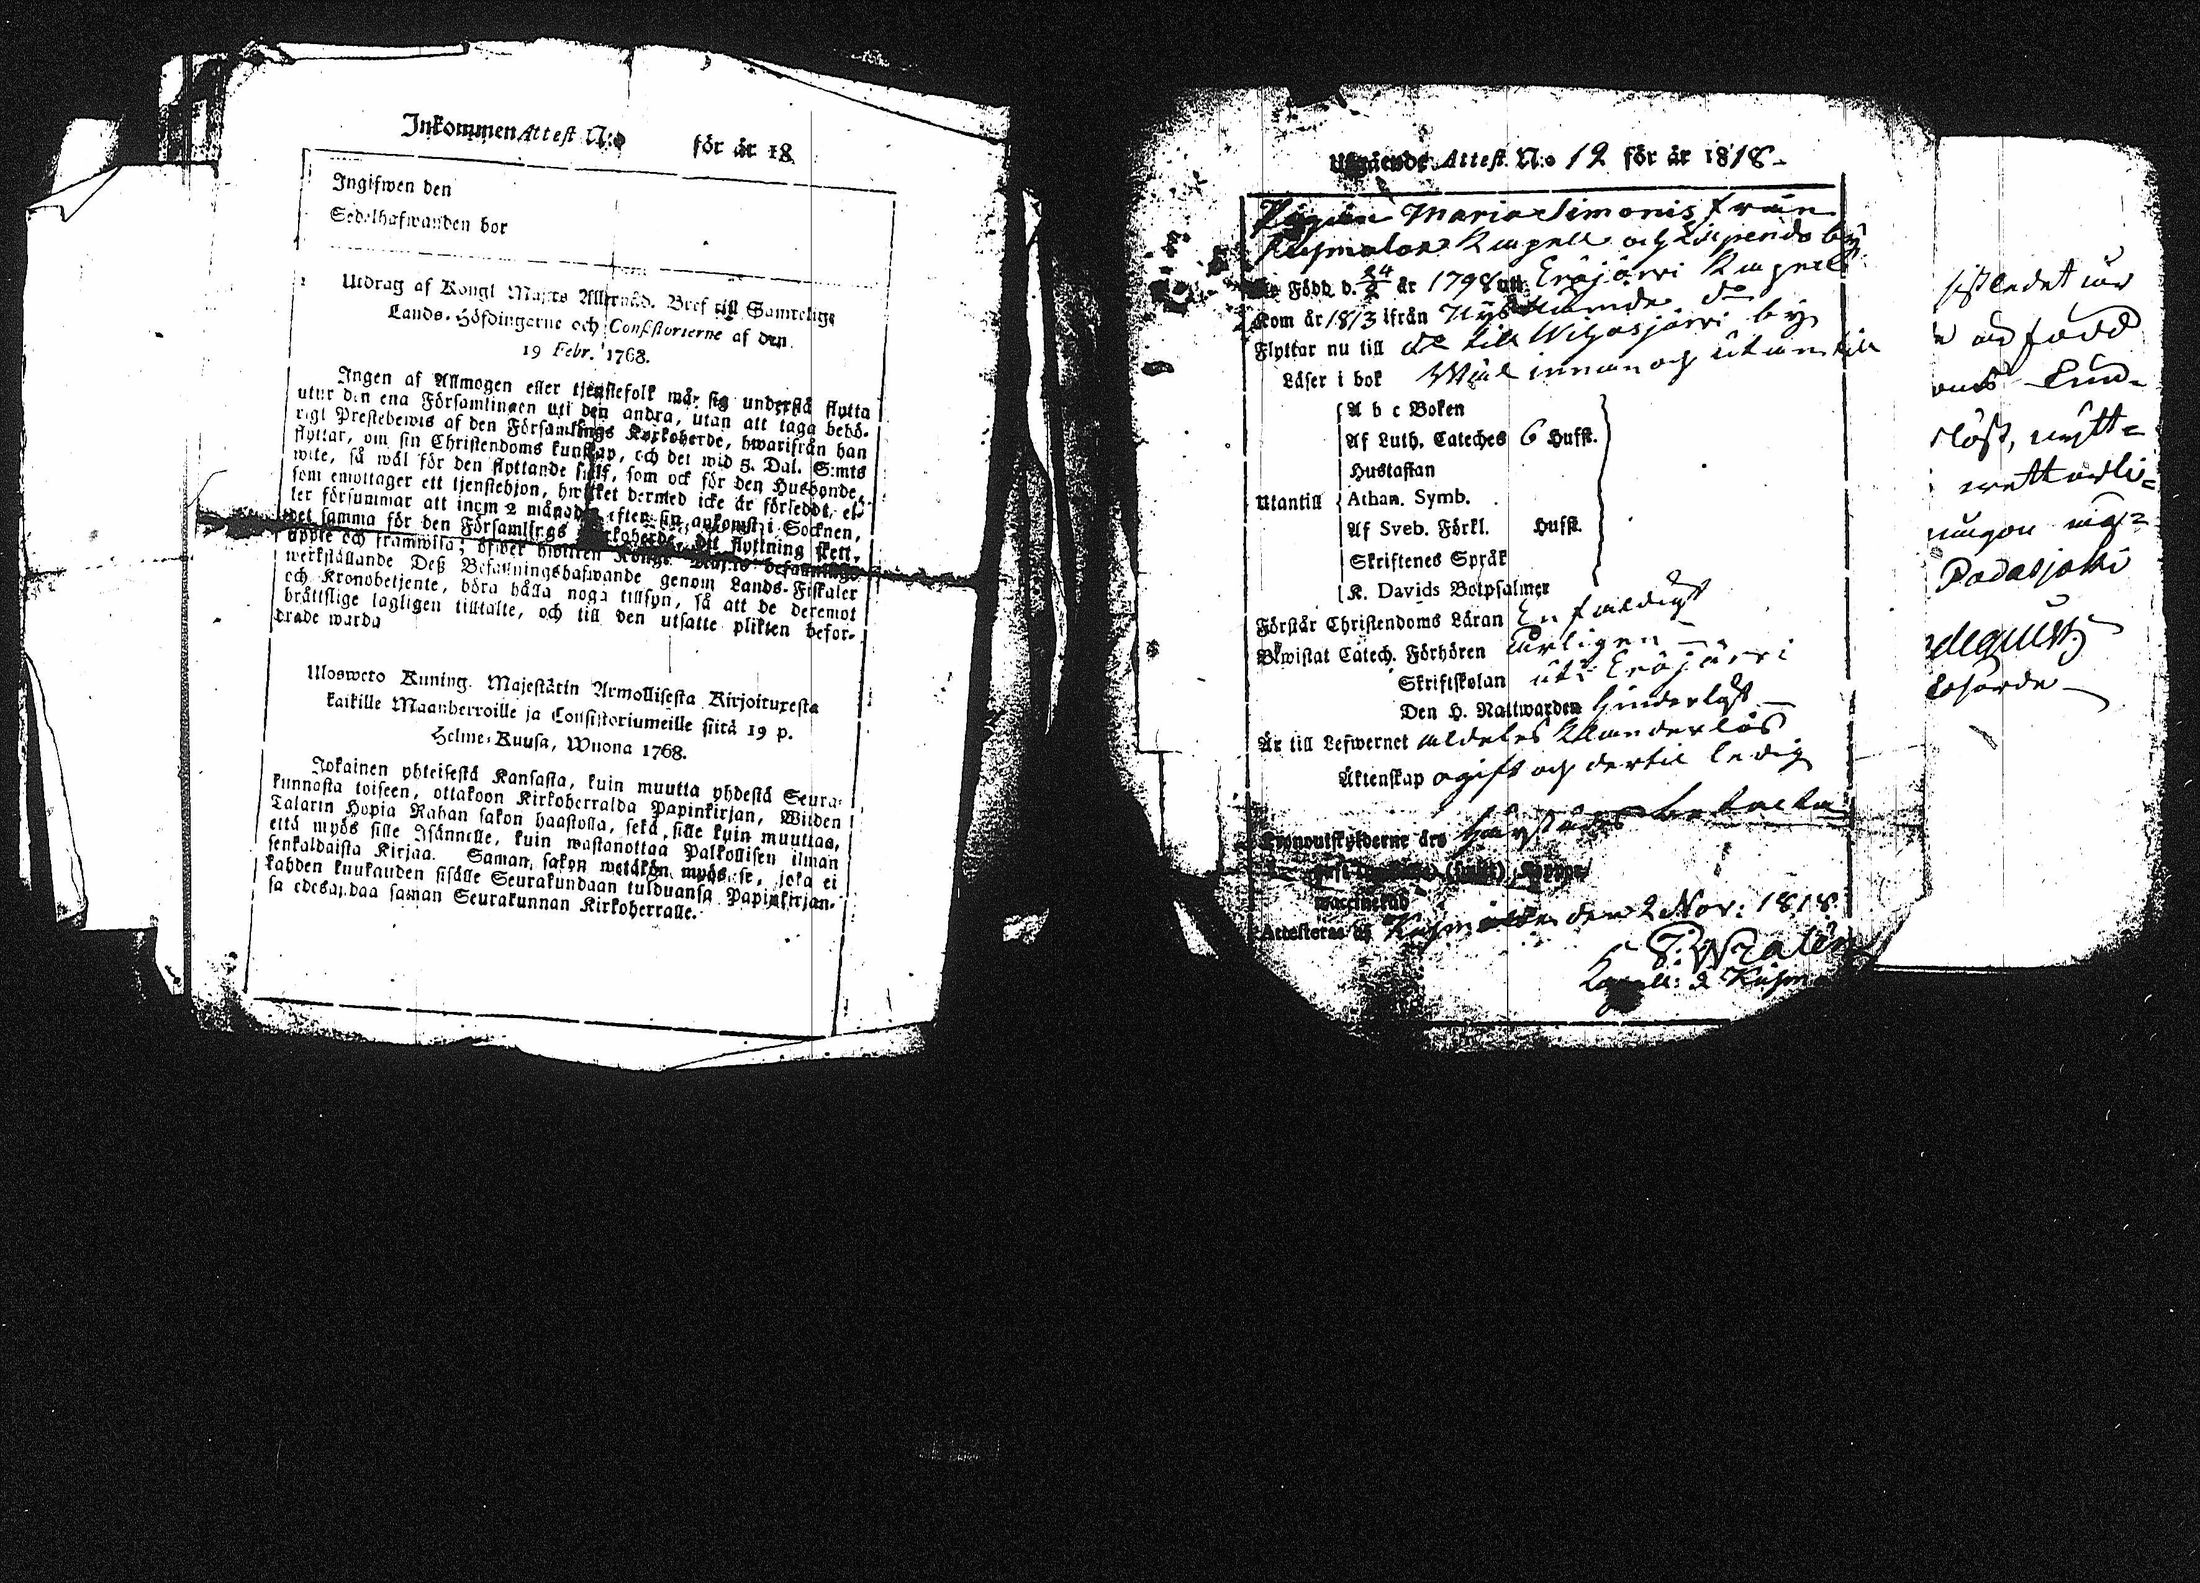 Inkommen Attest N:o för år 18
Ingifwen den
Sedelhafwanden bor
Utdrag af Kongl Maj:ts Allernåd. Bref till Samtelige
Lands-Höfdingarne och Consistorierne af den
19 Febr. 1768.
Ingen af Allmogen eller tjenstefolk må sig understå flytta
utur den ena Församlingen uti den andra, utan att taga behö-
rigt Prestebewis af den Församlings Kyrkoherde, hwarifrån han
flyttar, om sin Christendoms kunskap, och det wid 5. Dal. S:mts
wite, så wäl för den flyttande sjelf, som ock för den Husbonde,
som emottager ett tjenstehjon, hwilket dermed icke är försedt, el-
ler försummar att inom 2 månader efter sin ankomst i Socknen,
det samma för den Församlings Kyrkoherde, dit flyttning skett,
uppte och framwisa; öfwer hwilken Kongl. Maj:ts befallnings
werkställande Deß Befallningshafwande genom Lands-Fiskaler
och Kronobetjente, böra hålla noga tillsyn, så att de deremot
bråttslige lagligen tilltalte, och till den utsatte plikten befor-
drade warda
Ulosweto Kuning. Majestätin Armollisesta Kirjoituxesta
kaikille Maanherroille ja Consistoriumeille siitä 19 p.
Helme-Kuusa, Wuona 1768.
Jokainen yhteisestä Kansasta, kuin muutta yhdestä Seura-
kunnasta toiseen, ottakoon Kirkoherralda Papinkirjan, Wiiden
Talarin Hopia Rahan sakon haastolla, sekä sille kuin muuttaa,
että myös sille Isännelle, kuin wastanottaa Palkollisen ilman
senkaldaista Kirjaa. Saman sakon wetäkön myös se, joka ei
kahden kuukauden sisälle Seurakundaan tulduansa Papinkirjan-
sa edesandaa saman Seurakunnan Kirkoherralle.
Utgående Attest N:o 12 för år 1818
Pigan Maria Simonis från
Kuhmalax Kapell och by
Är Född d. 24/2 år 1798 uti Eräjärvi Kapell
Kom år 1813 ifrån do
Flyttar nu till do till Wihasjärvi by
Läser i bok Wäl innan och utantill
Utantill
A b c Boken
Af Luth. Cateches 6 Hufst.
Hustaflan
Athan. Symb.
Af Sveb. Förkl. Hufst.
Skriftenes Språk
K. Davids Botpsalmer
Förstår Christendoms Läran Enfaldigt
Bewistat Catech. Förhören årligen
Skriftskolan uti Eräjärvi
Den H. Nattwarden Hinderlöst
Är till Lefwernet aldeles klanderlös
Äktenskap ogift och dertil ledig
Kronoutskylderne års härstädes betalta
haft (smitt) koppor
waccinerad
Attesteras af Kuhmalax den 2 Nov: 1818
Kapell: i Kuhm
sistledet år
född
Lund-
nytt-
någon
Padasjoki